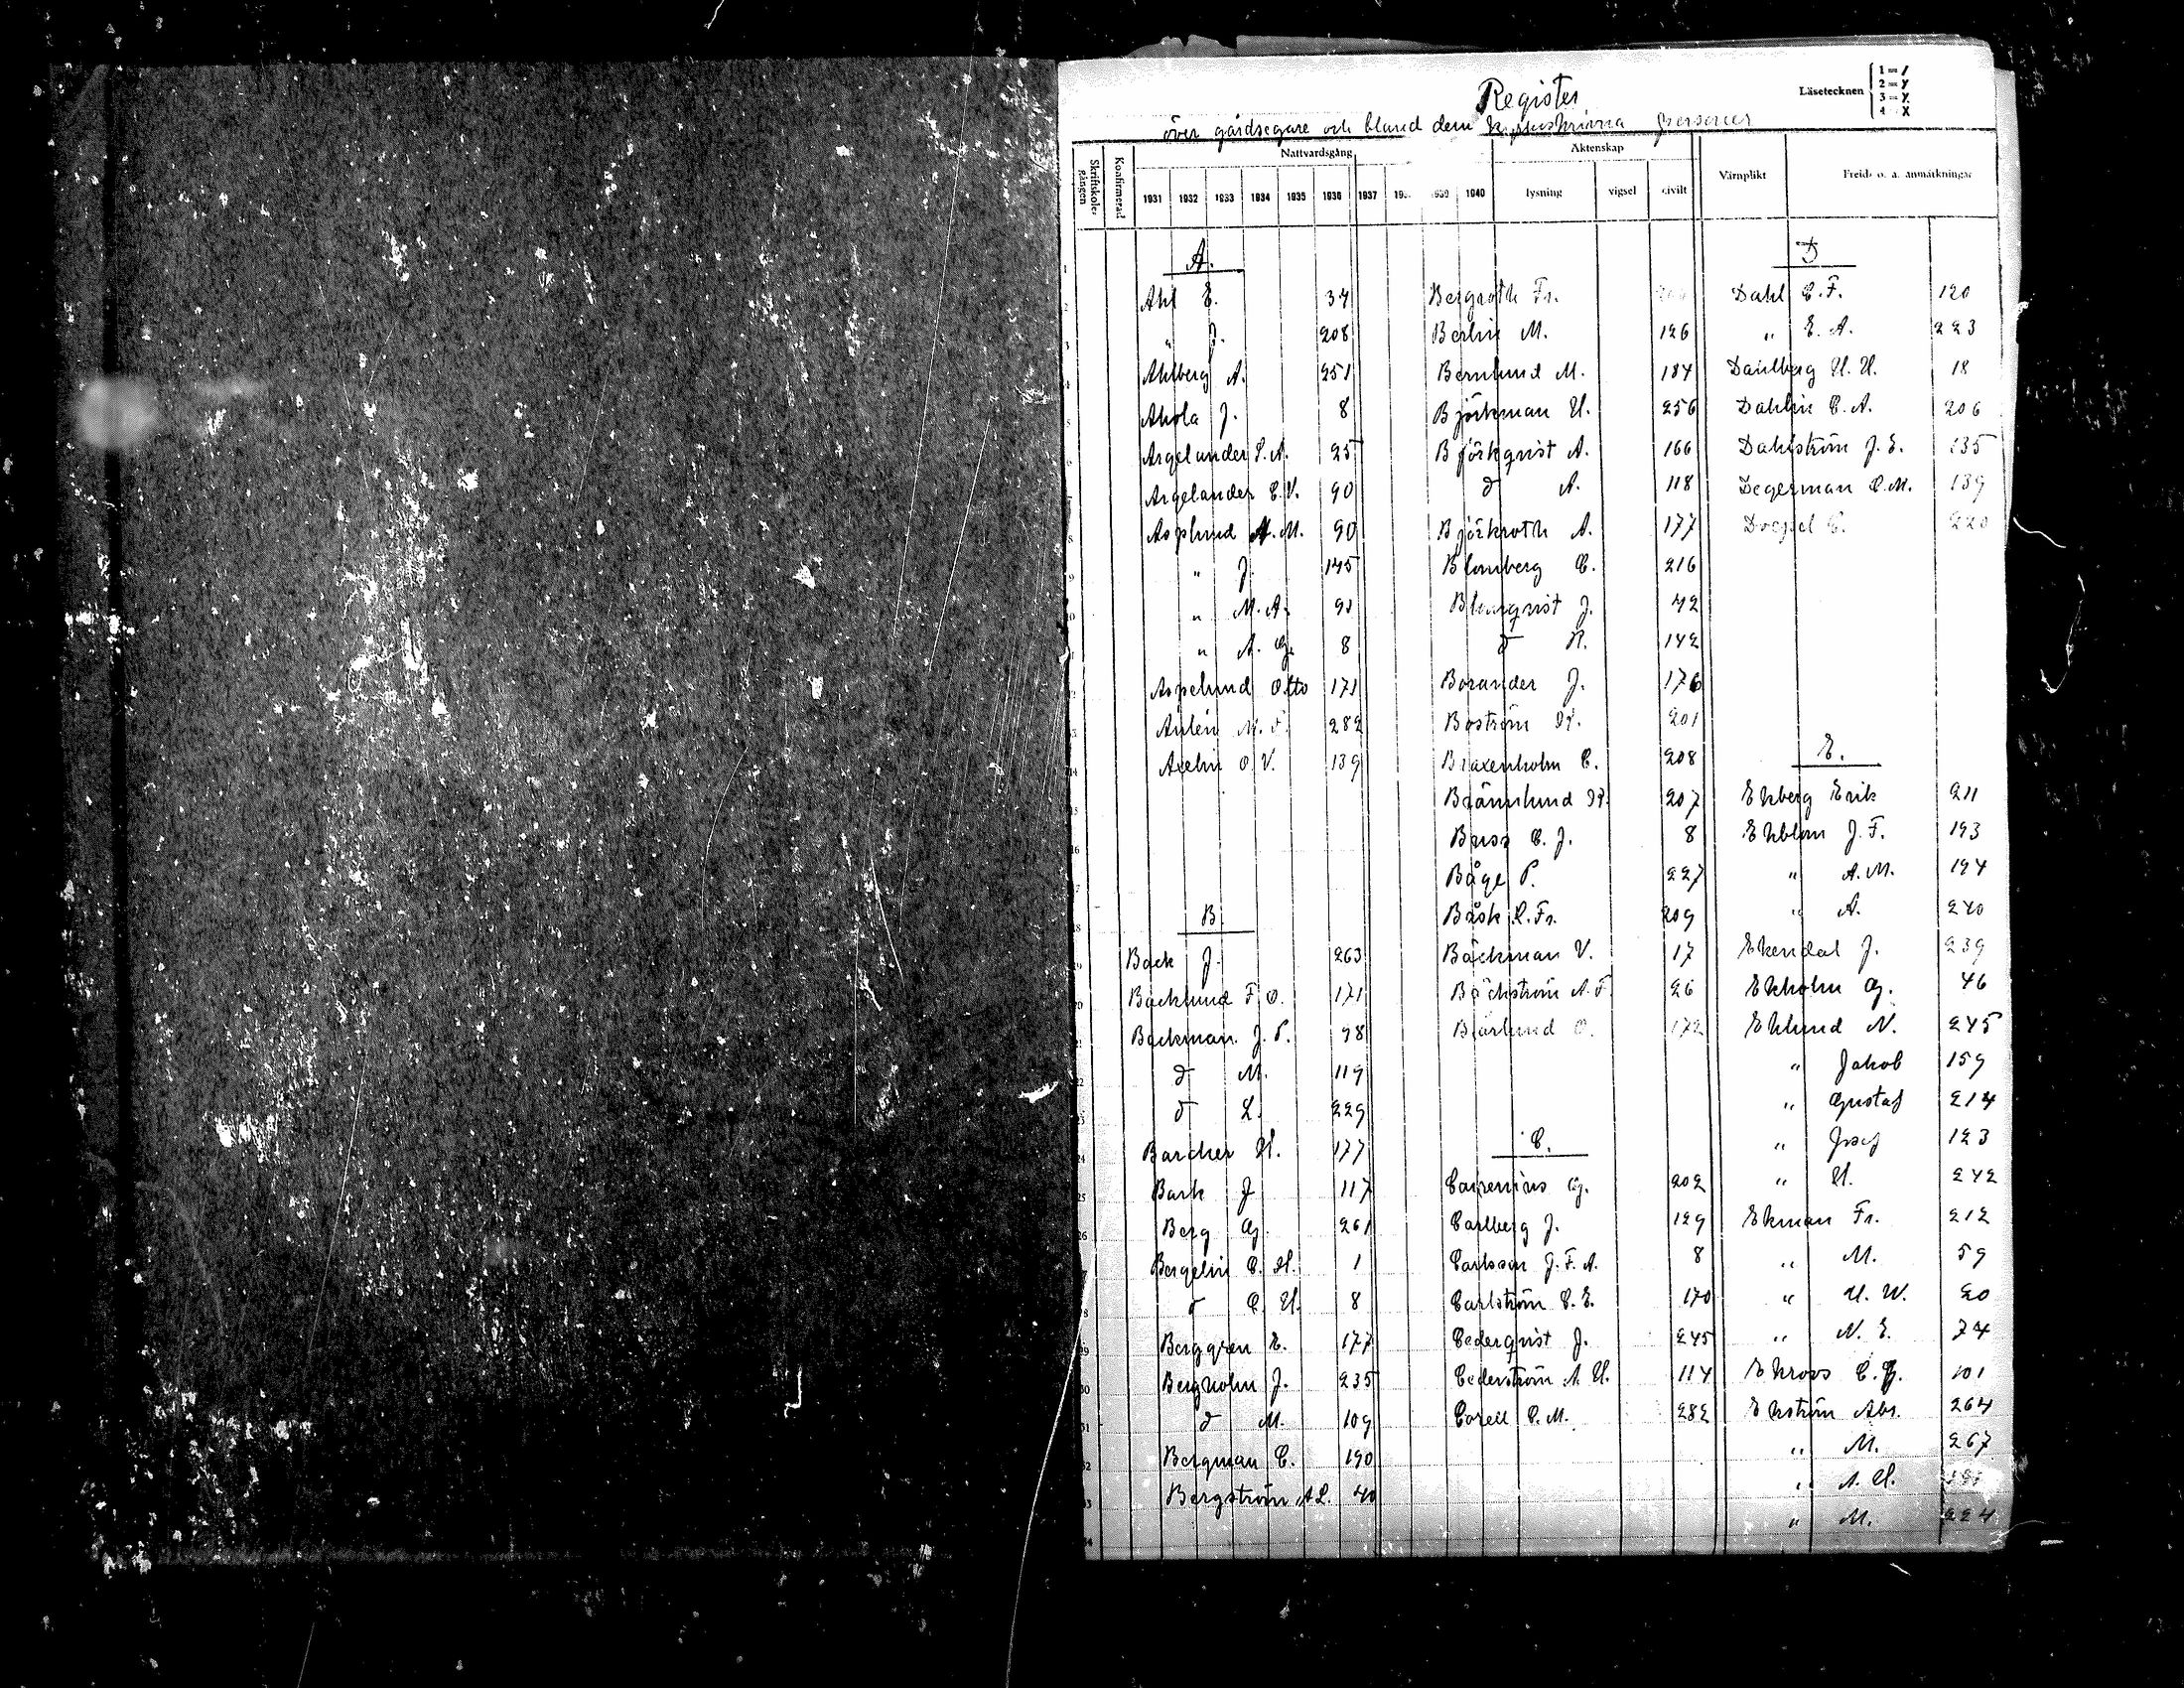 Register
över gårdsegare och bland dem kyrkoskrivna personer
Läsetecknen
1 = /
2 = Y
3 = X
4 X
Skriftskolegången
Konfirmerad
Nattvardsgång
Äktenskap
Värnplikt
Frejd- o. a. anmärkningar
1931 1932 1933 1934 1935 1936 1937 1939 1940
lysning vigsel civilt
A.
Ahl E. 37
" J. 208
Ahlberg A. 251
Ahola J. 8
Argelander E.A. 25
Argelander E.V. 90
Asplund A.M. 90
" J. 145
" M.A. 91
" A. G. 8
Aspelund Otto 171
Aulén M. F. 282
Axelin O.V. 139
B.
Back J. 263
Backlund F.O. 171
Backman J.P. 98
d M. 119
d L. 229
Barcher H. 177
Bark J 117
Berg G. 261
Bergelin C. H. 1
d C. H. 8
Berggren E. 177
Bergholm J. 235
d M. 109
Bergman C. 190
Bergström A.L. 40
Bergroth Fr.
Berlin M. 126
Bernlund M. 184
Björkman H. 256
Björkqvist A. 166
d A. 118
Björkroth A. 177
Blomberg C. 216
Blomqvist J. 42
d N. 142
Borander J. 176
Boström M. 201
Braxenholm C. 208
Brännlund M. 207
Buss C.J. 8
Båge P. 227
Båsk E.Fr. 209
Bäckman V. 17
Bäckström A.F. 26
Bärlund O. 172
C.
Cairenius G. 202
Carlberg J. 129
Carlsson J.F.A. 8
Carlström C.E. 170
Cederqvist J. 245
Cederström A.H. 114
Corell C.M. 282
D
Dahl C.F. 120
" E.A. 223
Dahlberg H.H. 18
Dahlin C.A. 206
Dahlström J.E. 135
Degerman C.M. 139
C. 220
E.
Ekberg Erik 211
Ekblom J.F. 193
" A.M. 194
" A. 240
Ekendal J. 239
Ekholm G. 46
Eklund N. 245
" Jakob 159
" Gustaf 214
" Josef 123
" H. 242
Ekman Fr. 212
" M. 59
" H.W. 20
" N.E. 74
Ekroos C.G. 101
Ekström Abr. 264
" M. 267
" A.H.
" M. 224